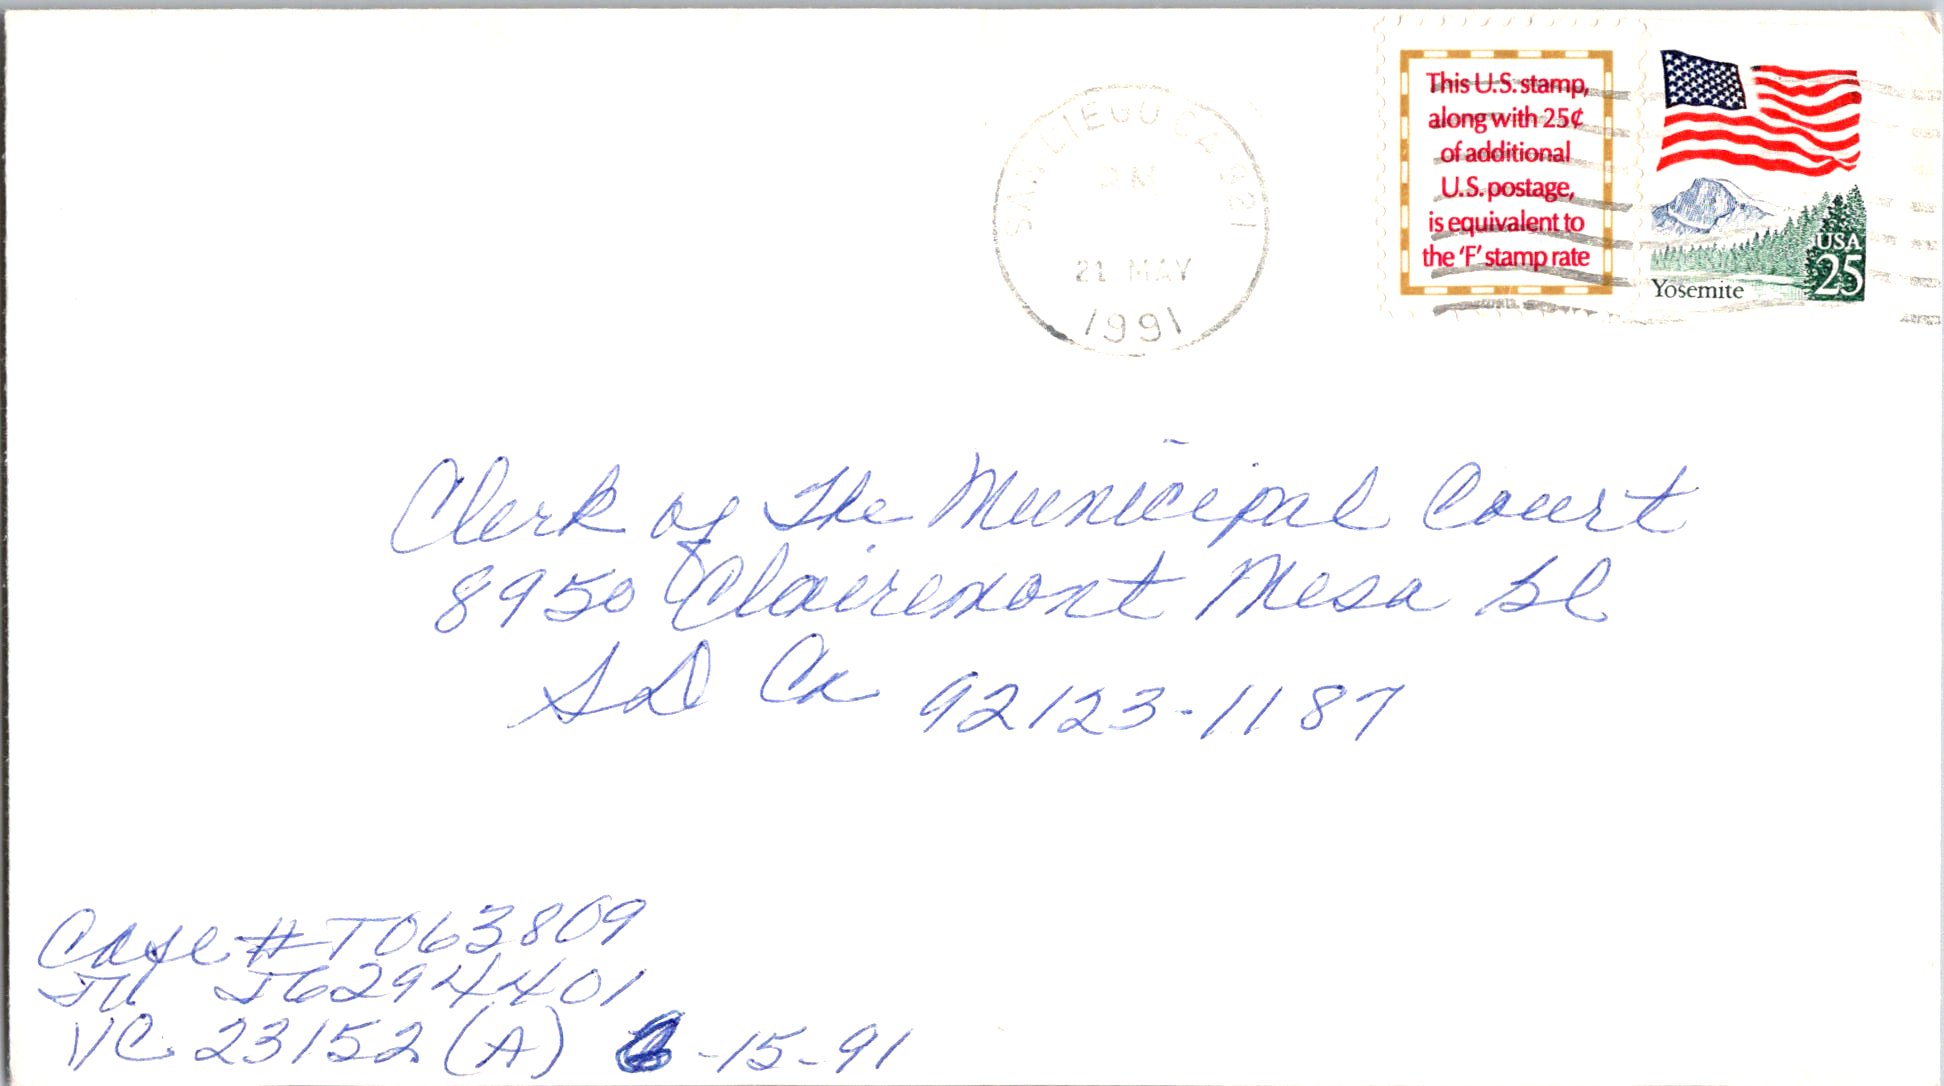 SAN DIEGO CA 921
PM
21 MAY
1991
This U.S. stamp,
along with 25¢
of additional
U.S. postage,
is equivalent to
the 'F' stamp rate
USA
25
Yosemite
Clerk of The Municipal Court
8950 Clairemont Mesa Bl
SD Ca 92123-1187
Case # T063809
J6294401
VC 23152 (A) 6-15-91